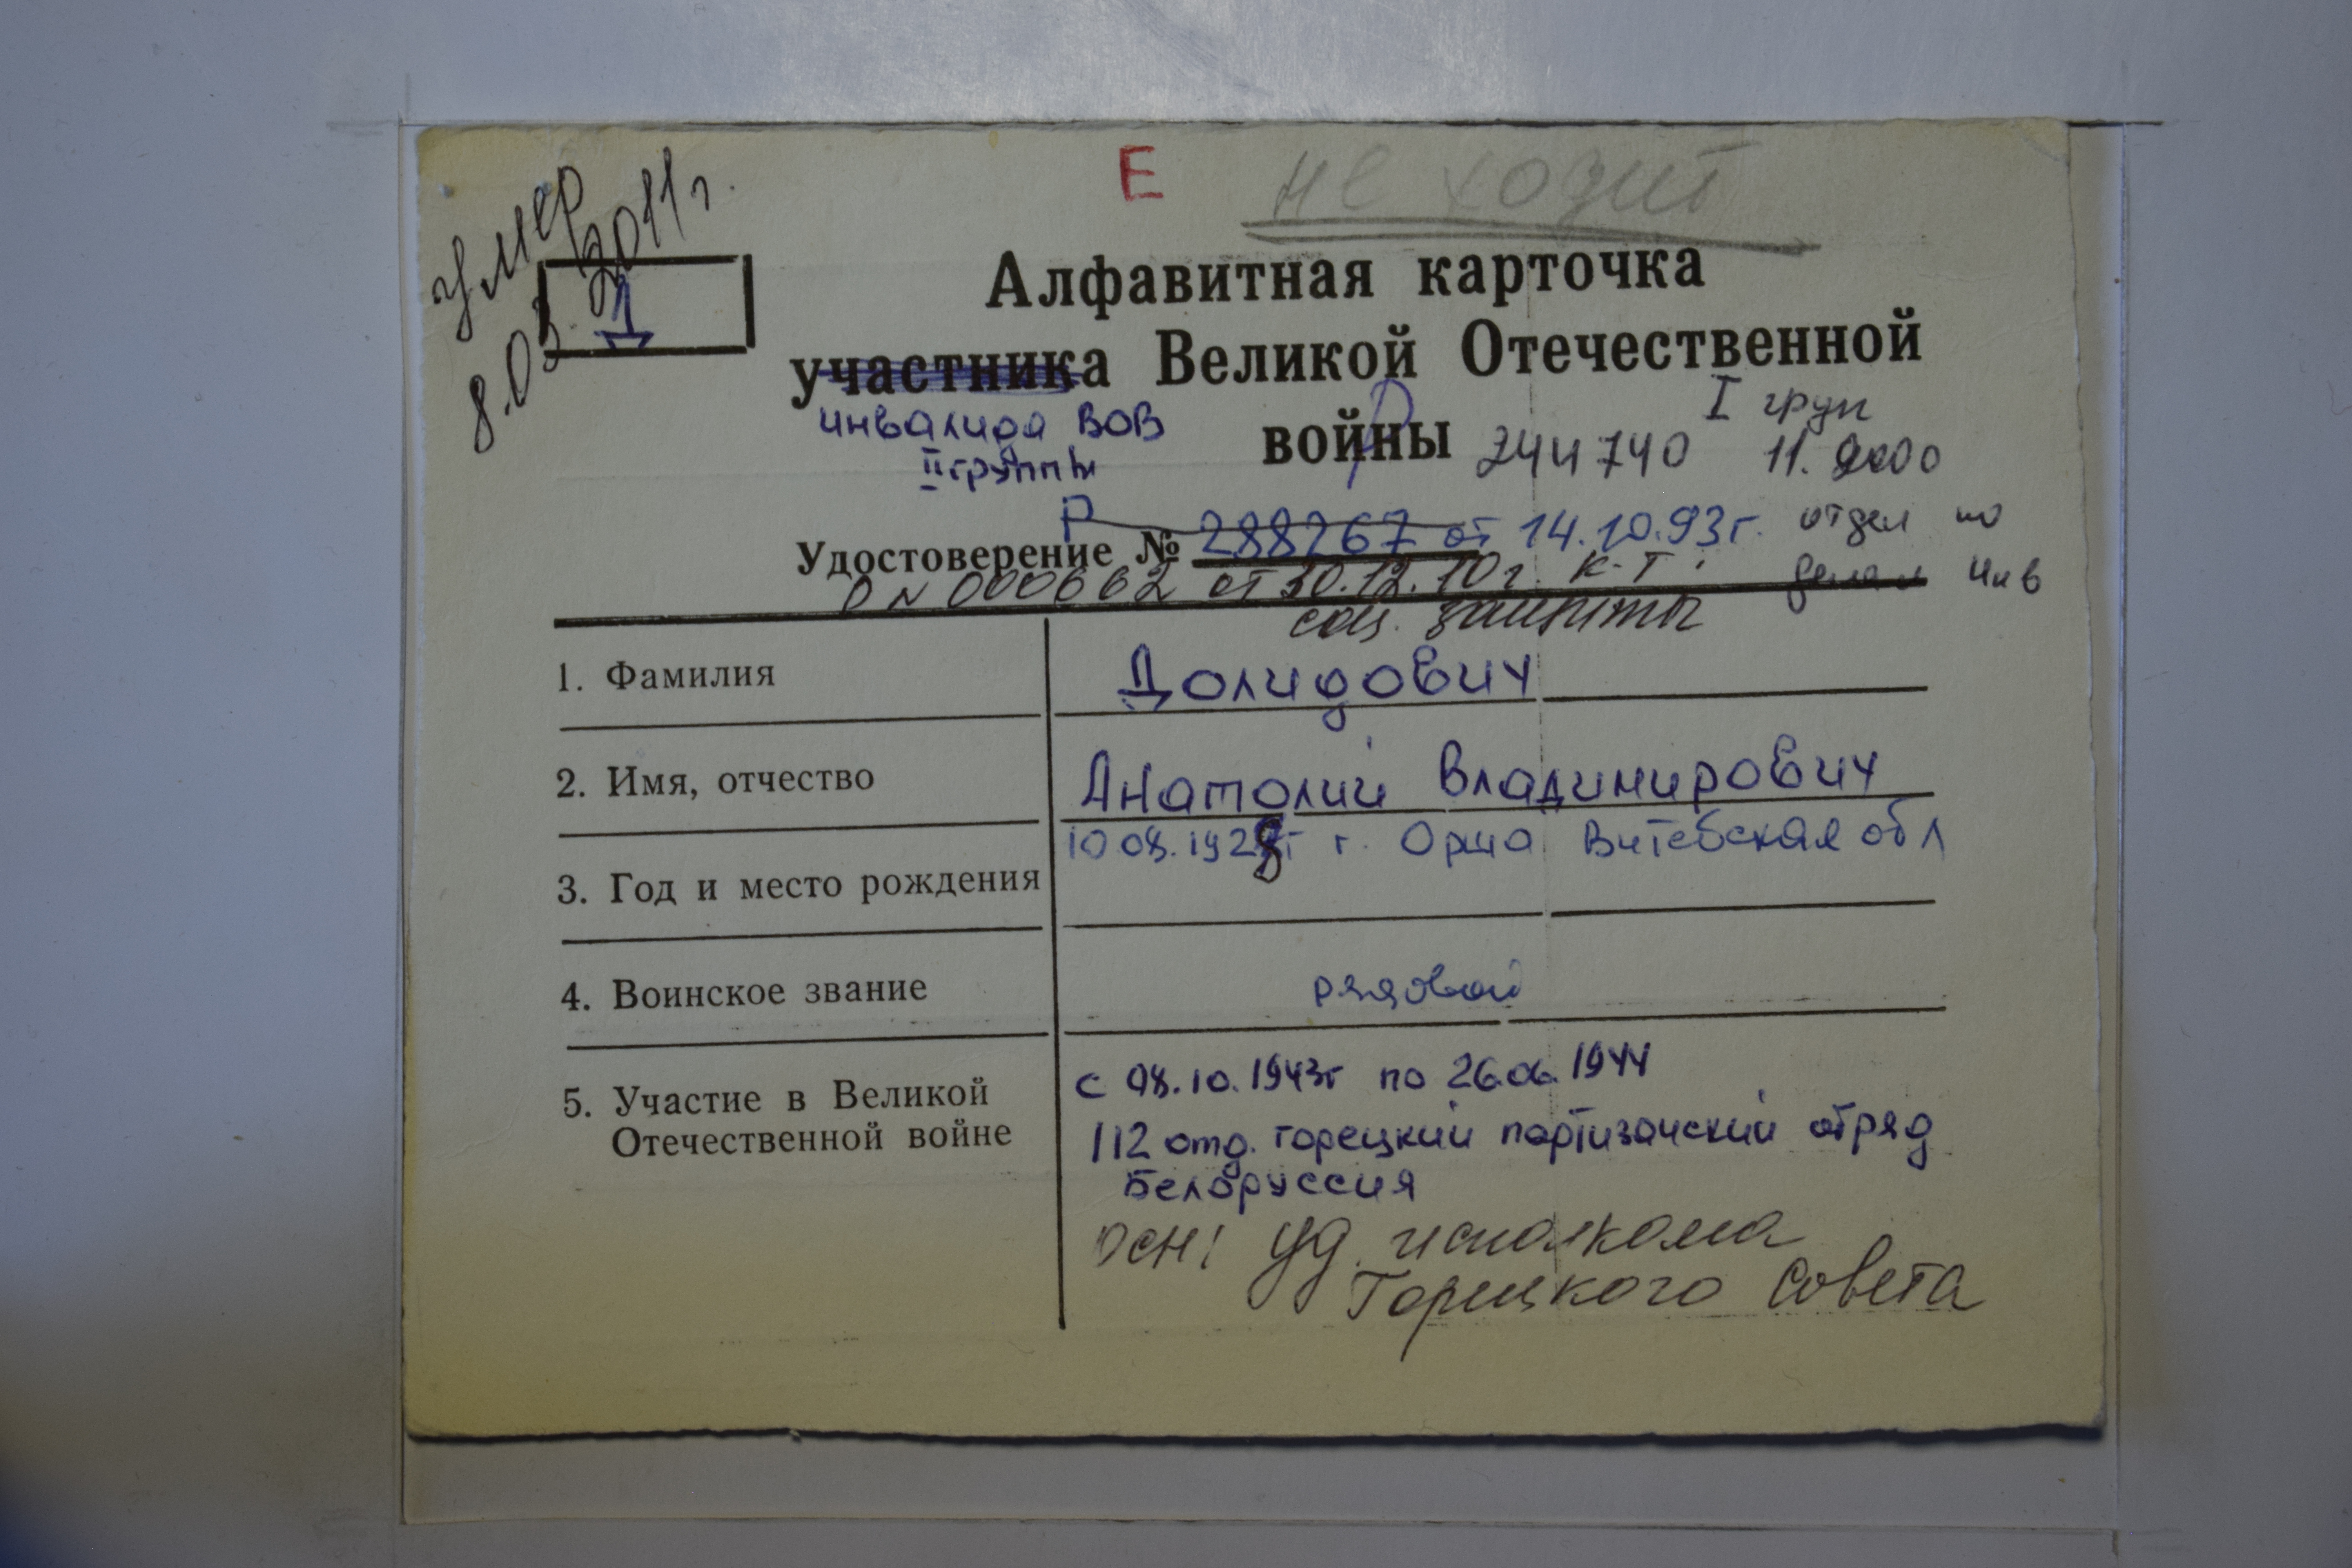 Е не ходит
умер
8.03.2011г.
Д
Алфавитная карточка
участника Великой Отечественной
инвалида ВОВ
войны
I груп
II группы
Р 244740 11.2000
Р 288267 от 14.10.93г. отдел по
Удостоверение №
О № 000662 от 30.12.10г. к-т делам инв
соц. защиты
1. Фамилия Долидович
2. Имя, отчество Анатолий Владимирович
10 08. 1928г г. Орша Витебская обл
3. Год и место рождения
4. Воинское звание рядовой
5. Участие в Великой
Отечественной войне
с 08.10.1943г по 26.06.1944
112 отд. горецкий партизанский отряд
Белоруссия
осн: уд. исполкома
Горецкого Совета